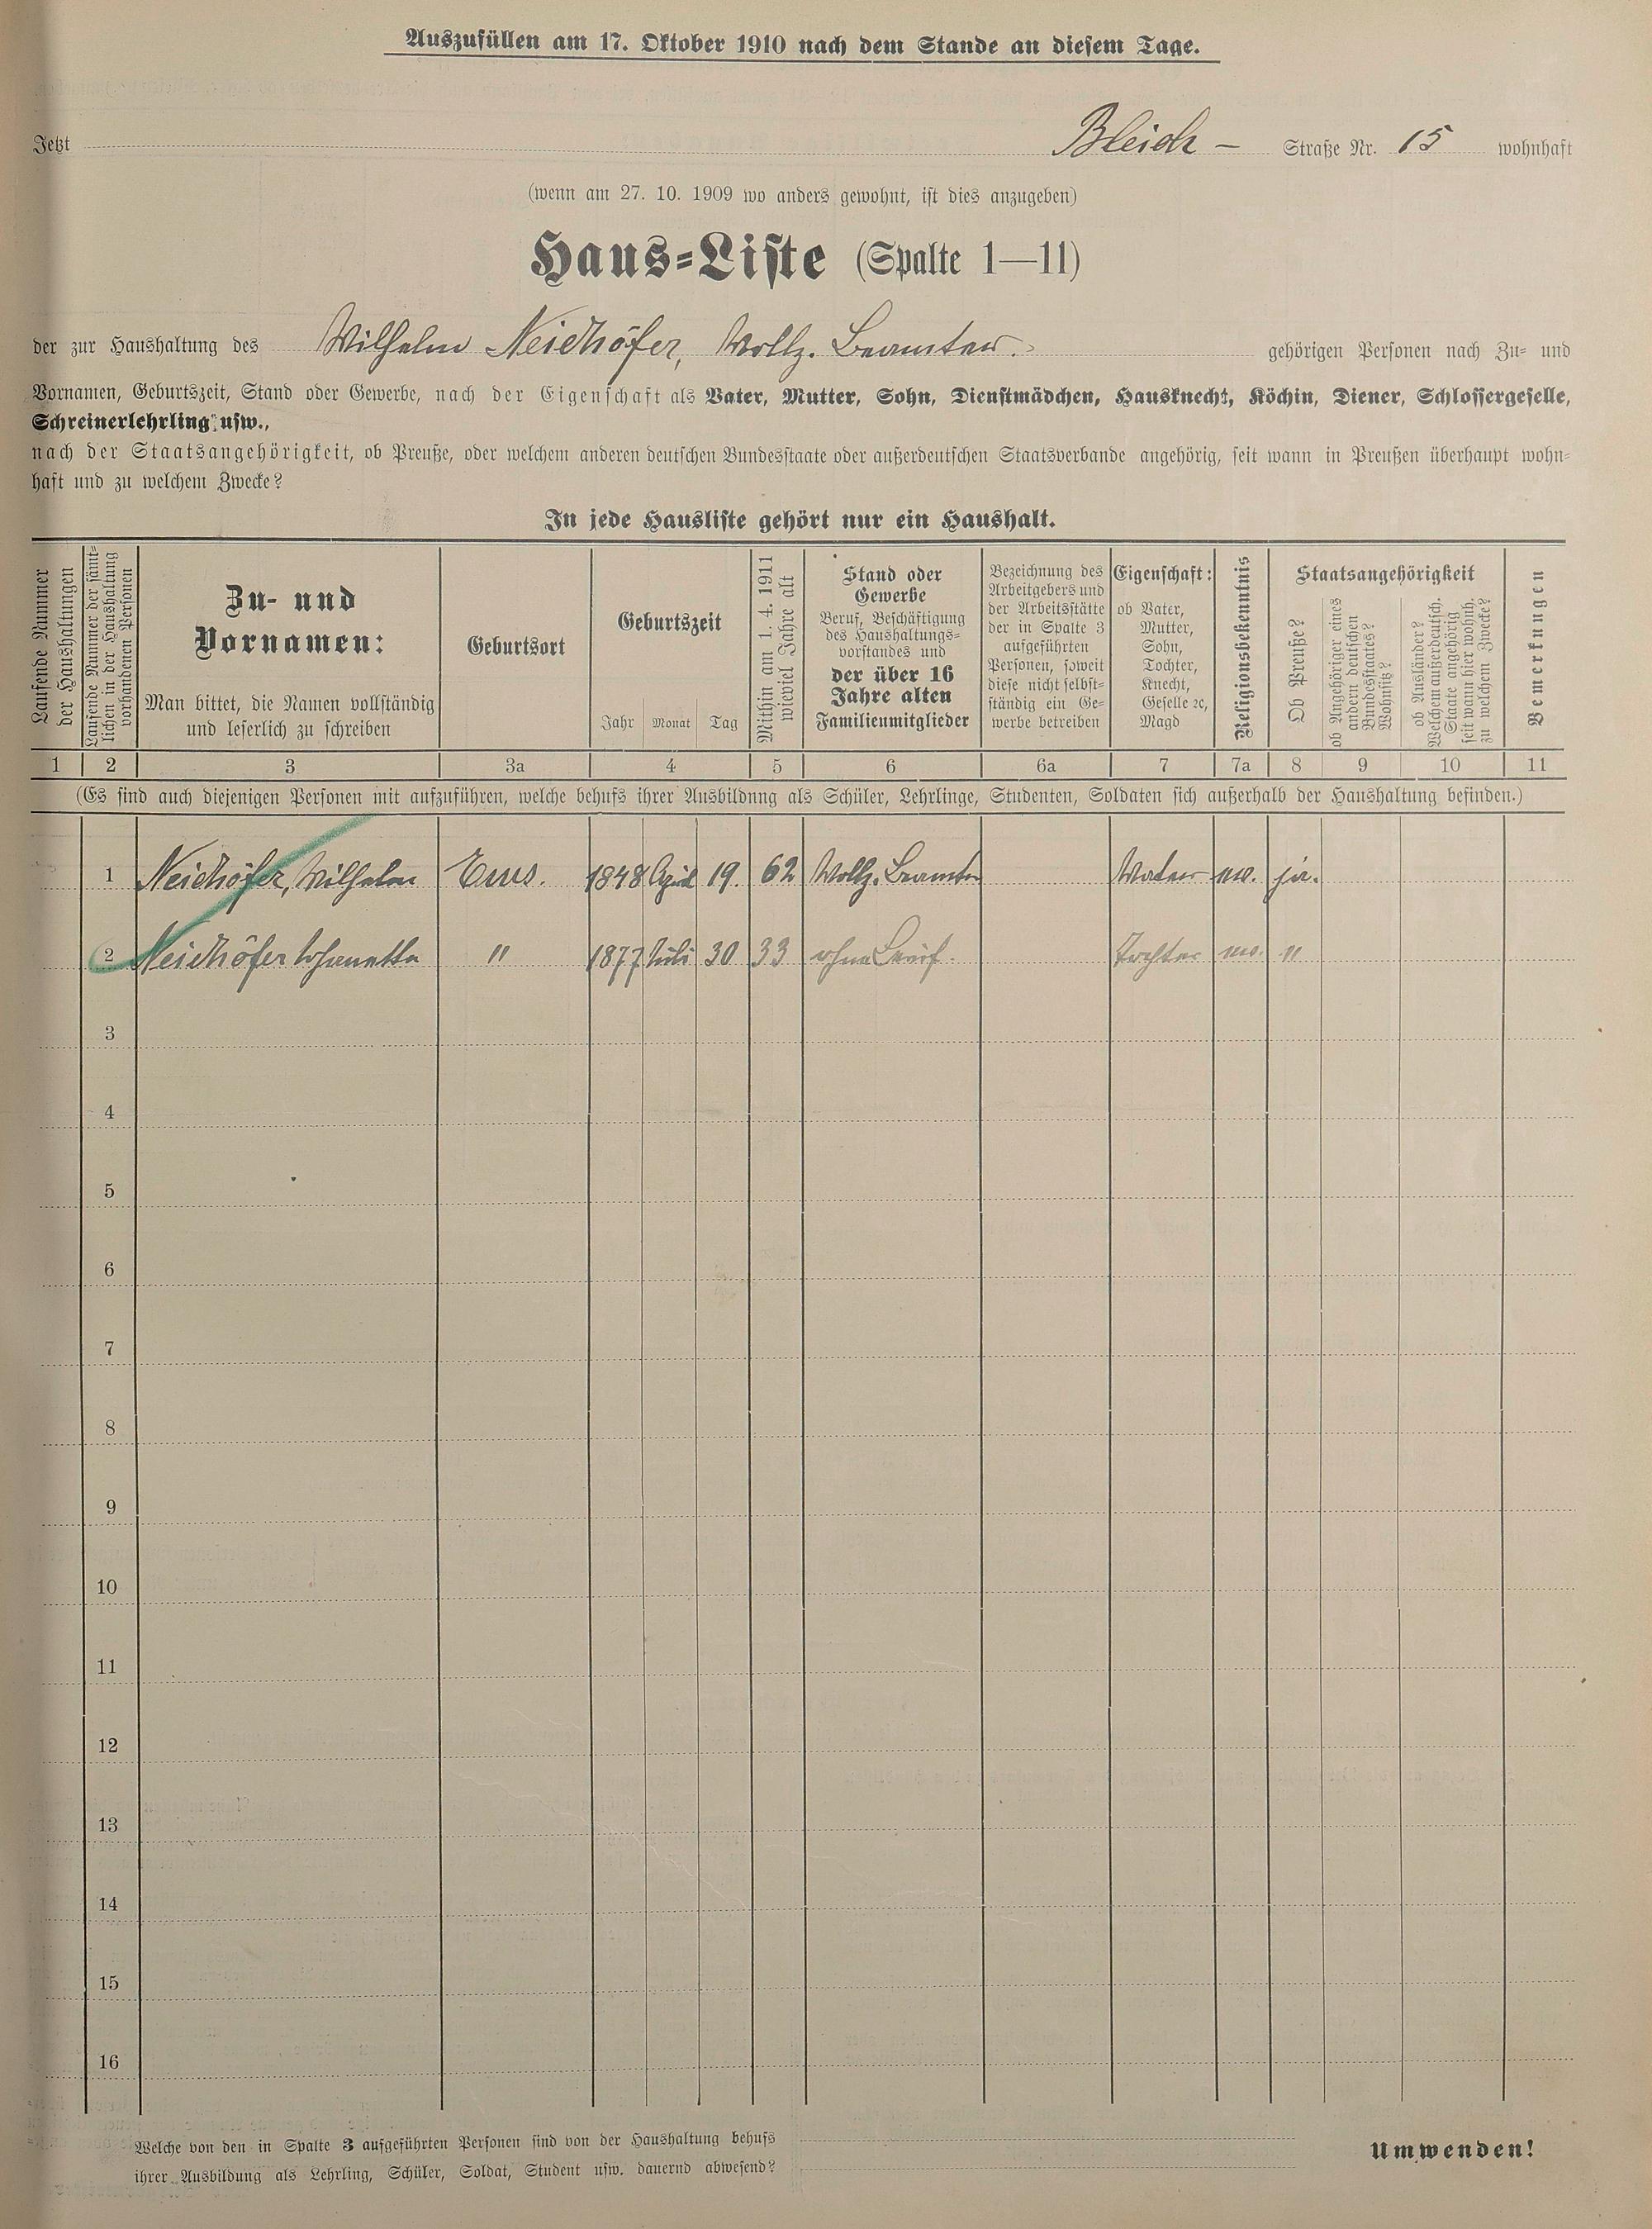 Auszufüllen am 17. Oktober 1910 nach dem Stande an diesem Tage.
Jetzt Bleich - Straße Nr. 15 wohnhaft
(wenn am 27. 10. 1909 wo anders gewohnt, ist dies anzugeben)
Haus-Liste (Spalte 1—11)
der zur Haushaltung des Wilhelm Neidhöfer, Vollz. Beamter. gehörigen Personen nach Zu- und
Vornamen, Geburtszeit, Stand oder Gewerbe, nach der Eigenschaft als Vater, Mutter, Sohn, Dienstmädchen, Hausknecht, Köchin, Diener, Schlossergeselle,
Schreinerlehrling usw.,
nach der Staatsangehörigkeit, ob Preuße, oder welchem anderen deutschen Bundesstaate oder außerdeutschen Staatsverbande angehörig, seit wann in Preußen überhaupt wohn-
haft und zu welchem Zwecke?
In jede Hausliste gehört nur ein Haushalt.
Laufende Nummer
der Haushaltungen
Laufende Nummer der sämt-
lichen in der Haushaltung
vorhandenen Personen
Zu- und
Vornamen:
Man bittet, die Namen vollständig
und leserlich zu schreiben
Geburtsort
Geburtszeit
Jahr Monat Tag
Mithin am 1. 4. 1911
wieviel Jahre alt
Stand oder
Gewerbe
Beruf, Beschäftigung
des Haushaltungs-
vorstandes und
der über 16
Jahre alten
Familienmitglieder
Bezeichnung des
Arbeitgebers und
der Arbeitsstätte
der in Spalte 3
aufgeführten
Personen, soweit
diese nicht selbst-
ständig ein Ge-
werbe betreiben
Eigenschaft:
ob Vater,
Mutter,
Sohn,
Tochter,
Knecht,
Geselle ꝛc,
Magd
Religionsbekenntnis
Staatsangehörigkeit
Ob Preuße?
ob Angehöriger eines
andern deutschen
Bundesstaates?
Wohnsitz?
ob Ausländer?
Welchem außerdeutsch.
Staate angehörig
seit wann hier wohnh.
zu welchem Zwecke?
Bemerkungen
1 2 3 3a 4 5 6 6a 7 7a 8 9 10 11
(Es sind auch diejenigen Personen mit aufzuführen, welche behufs ihrer Ausbildung als Schüler, Lehrlinge, Studenten, Soldaten sich außerhalb der Haushaltung befinden.)
1 Neidhöfer, Wilhelm Ems. 1848 April 19. 62 Vollz. Beamter Vater ev. ja.
2 Neidhöfer Johanetta " 1877 Juli 30 33 ohne Beruf. Tochter ev. "
3
4
5
6
7
8
9
10
11
12
13
14
15
16
Welche von den in Spalte 3 aufgeführten Personen sind von der Haushaltung behufs
ihrer Ausbildung als Lehrling, Schüler, Soldat, Student usw. dauernd abwesend?
Umwenden!